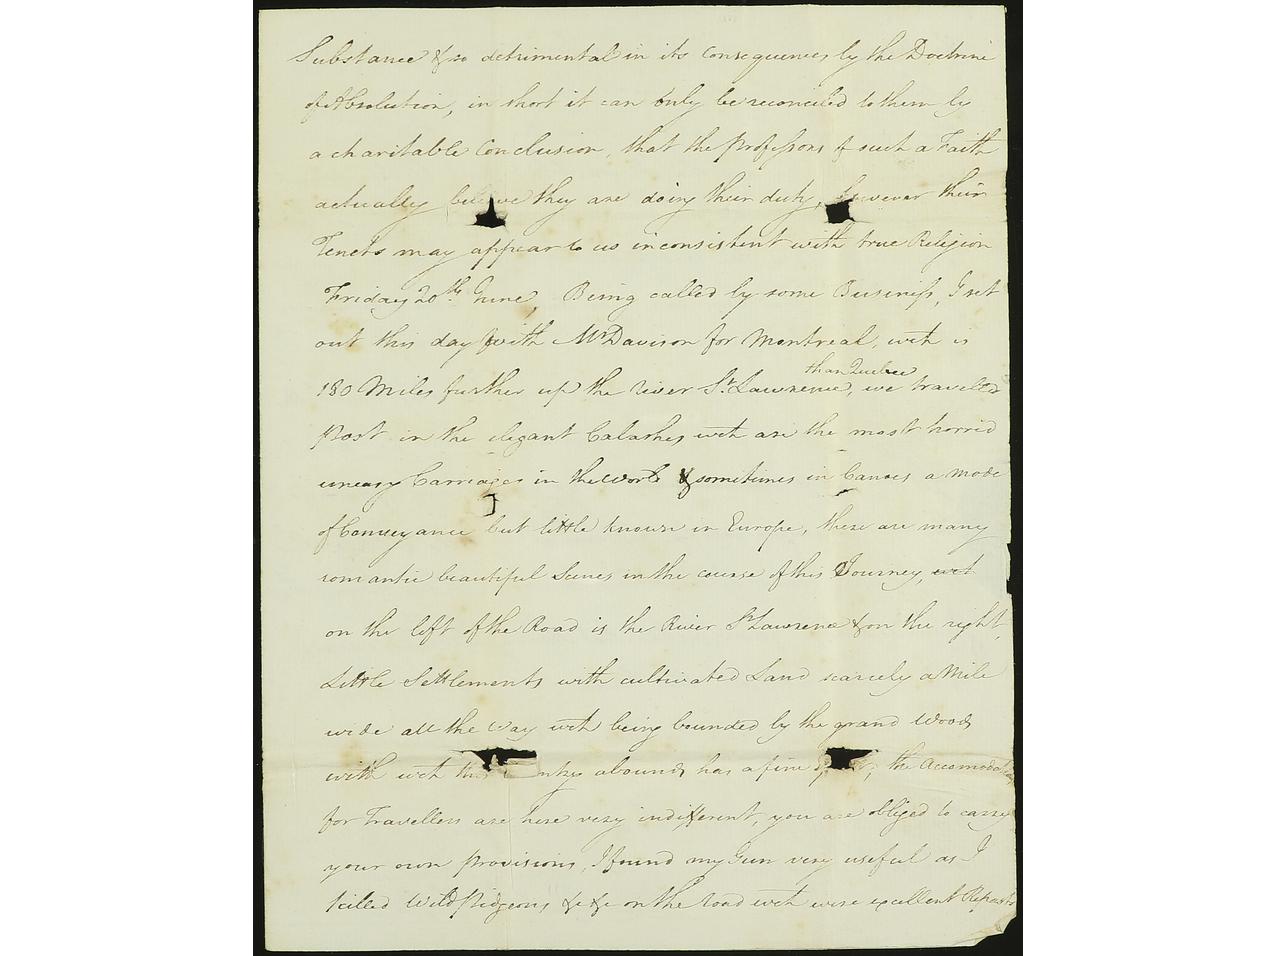 Substance & so detrimental in its consequences by the Doctrine
of Absolution, in short it can only be reconciled to them by
a charitable Conclusion, that the Professors of such a Faith
actually believe they are doing their duty, however their
Tenets may appear to us inconsistent with true Religion
Friday 20th June, Being called by some Business, I set
out this day with Mr Davison for Montreal, wch is
than Quebec
180 Miles further up the river St. Lawrence, we travelled
Post in the elegant Calashes wch are the most horrid
uneasy Carriages in the World & sometimes in Canoes a mode
of Conveyance but little known in Europe, these are many
romantic beautiful Scenes in the course of this Journey, wch
on the left of the Road is the River St Lawrence & on the right,
Little Settlements with cultivated Land scarcely a Mile
wide all the Way wch being bounded by the grand Woods
with wch this abounds has a fine the Accomodations
for Travellers are here very indifferent, you are obliged to carry
your own provisions, I found my Gun very useful as I
killed Wild Pidgeons &c &c on the road wch were excellent Repasts